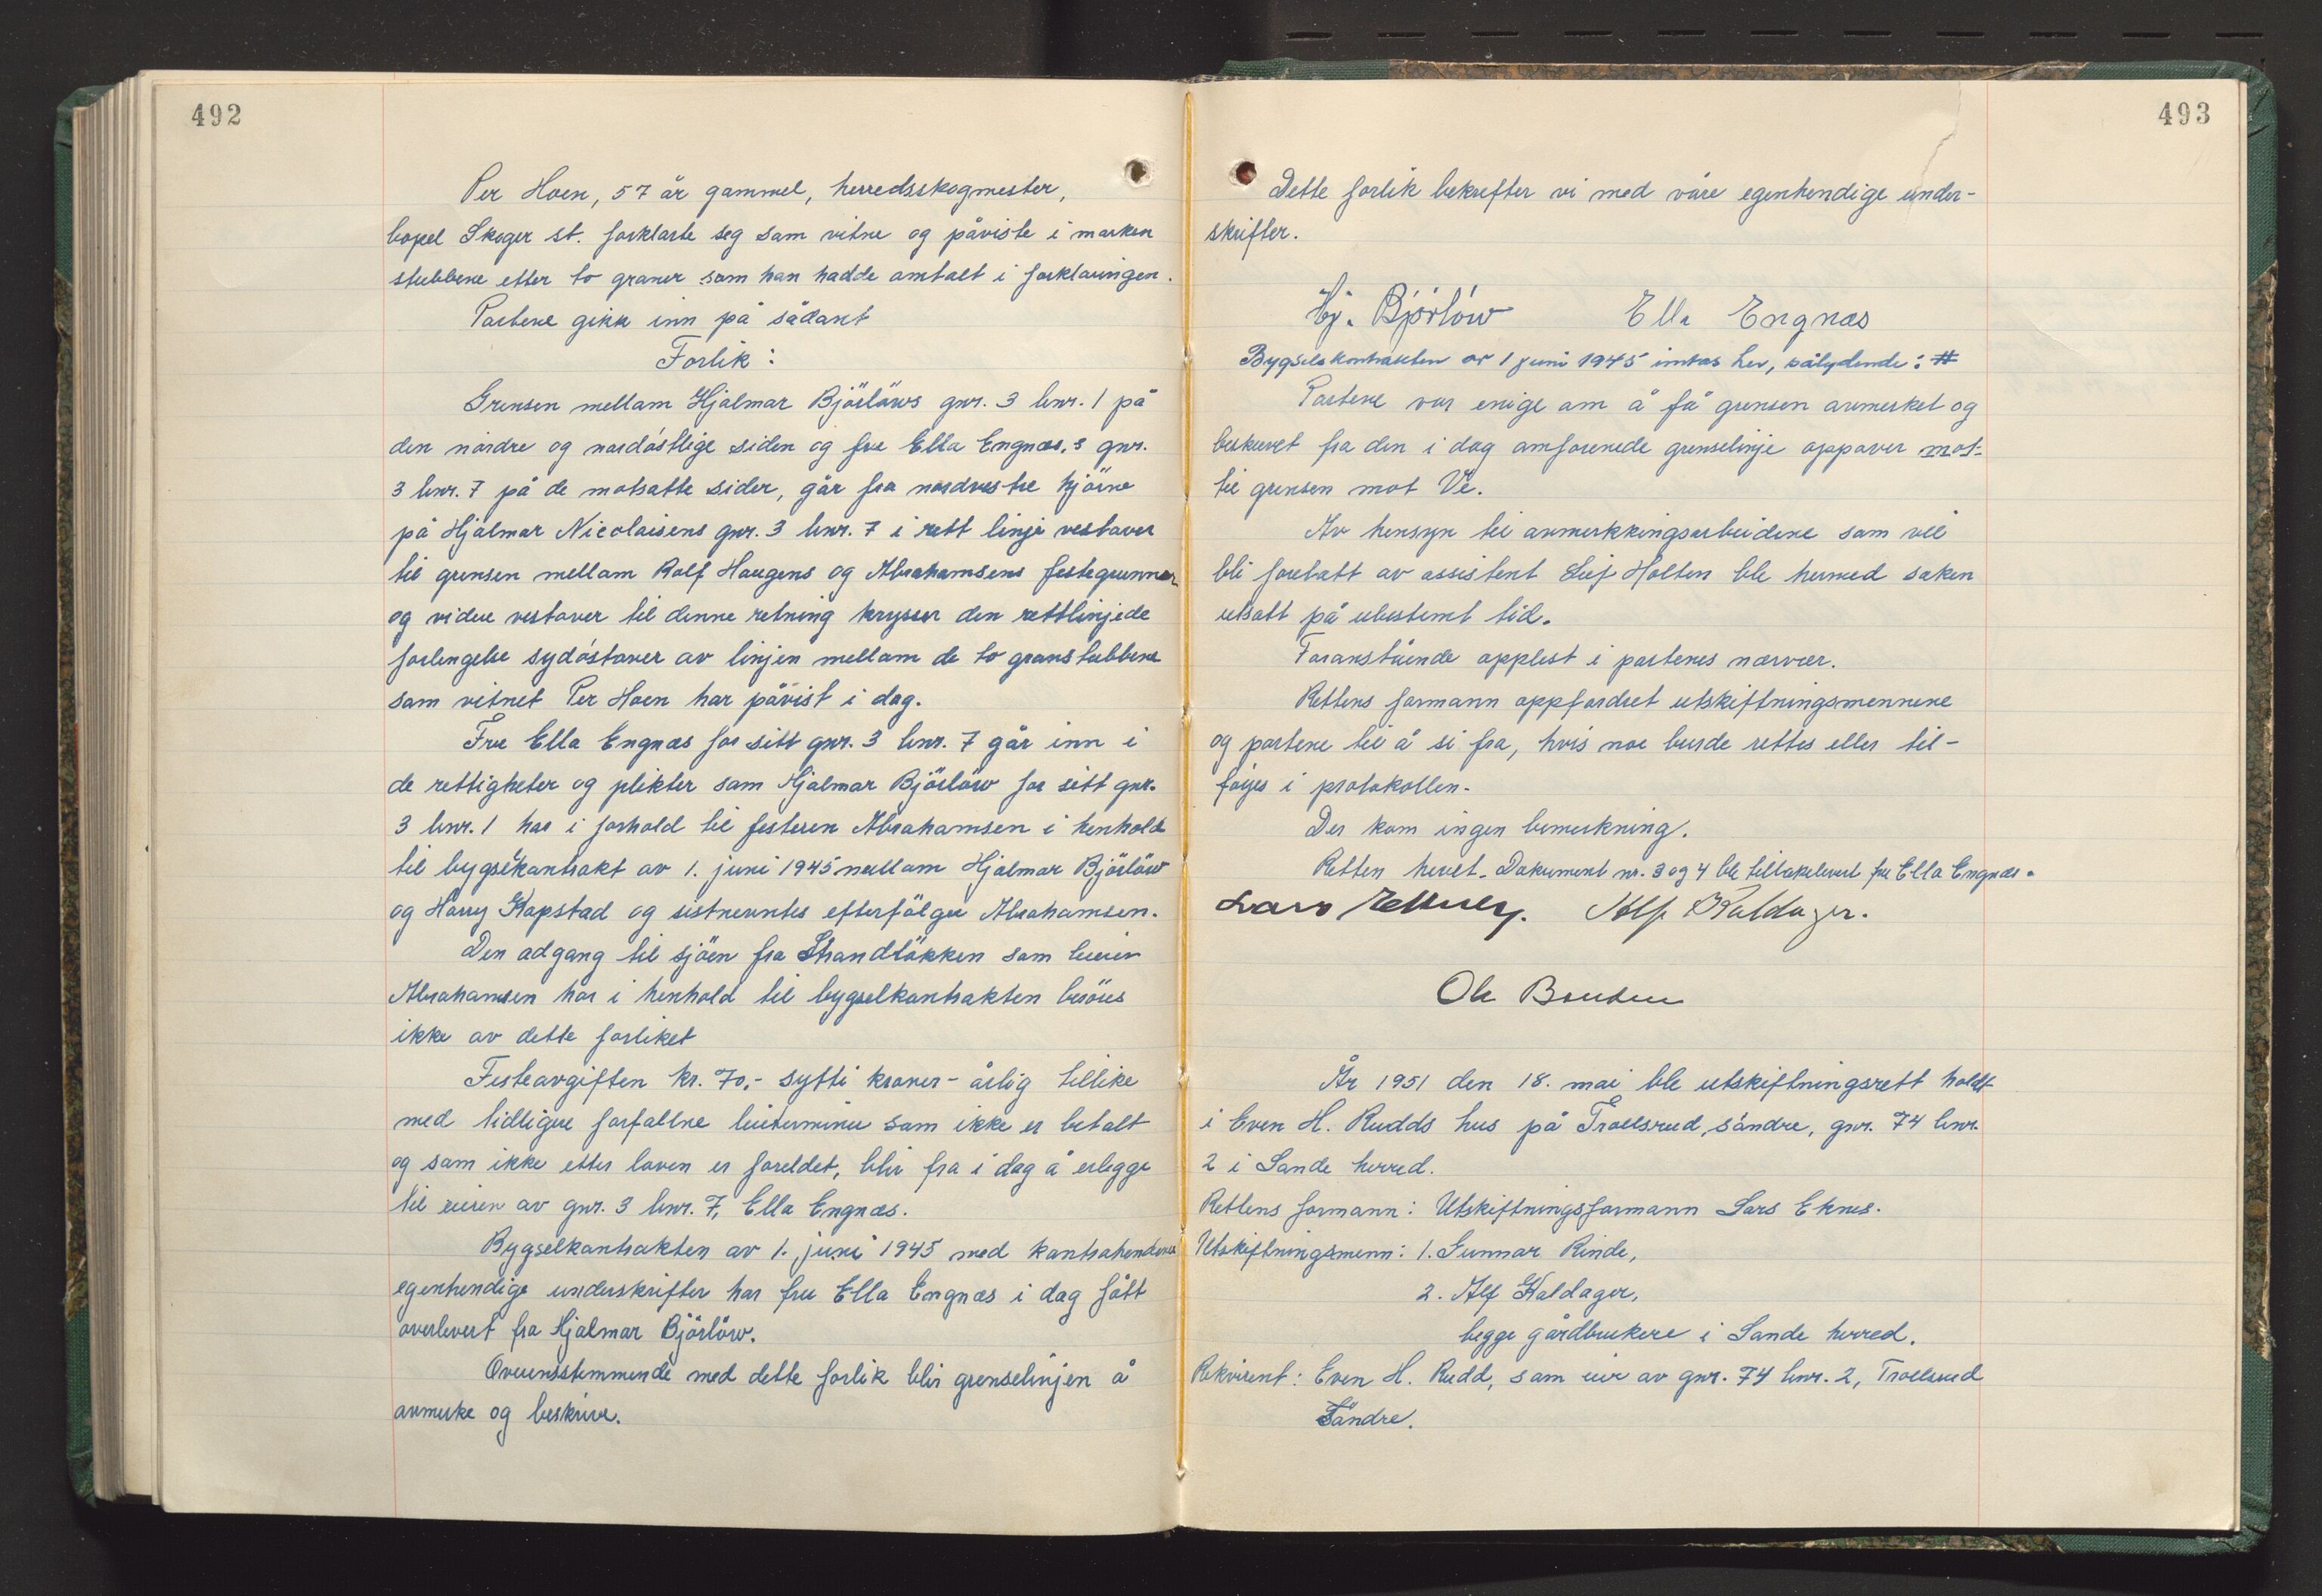 492
Per Hoen, 57 år gammel, herredsskogmester,
bopel Skoger st. forklarte seg som vitne og påviste i marken
stubbene etter to graner som han hadde omtalt i forklaringen.
Partene gikk inn på sådant
Forlik:
Grensen mellom Hjalmar Björlöws gnr. 3 bnr. 1 på
den nordre og nordöstlige siden og fru Ella Engnæs,s gnr.
3 bnr. 7 på de motsatte sider, går fra nordvestre hjörne
på Hjalmar Nicolaisens gnr. 3 bnr. 7 i rett linje vestover
til grensen mellom Rolf Haugens og Abrahamsens festegrunner
og videre vestover til denne retning krysser den rettlinjede
forlengelse sydöstover av linjen mellom de to granstubbene
som vitnet Per Hoen har påvist i dag.
Fru Ella Engnæs for sitt gnr. 3 bnr. 7 går inn i
de rettigheter og plikter som Hjalmar Björlöw for sitt gnr.
3 bnr. 1 har i forhold til festeren Abrahamsen i henhold
til bygselkontrakt av 1. juni 1945 mellom Hjalmar Björlöw
og Harry Kopstad og sistnevntes efterfölger Abrahamsen.
Den adgang til sjöen fra Strandlökken som leieren
Abrahamsen har i henhold til bygselkontrakten beröres
ikke av dette forliket
Festeavgiften kr. 70,- sytti kroner - årlig tillike
med tidligere forfallne leieterminer som ikke er betalt
og som ikke etter loven er foreldet, blir fra i dag å erlegge
til eieren av gnr. 3 bnr. 7, Ella Engnæs.
Bygselkontrakten av 1. juni 1945 med kontrahentenes
egenhendige underskrifter har fru Ella Engnæs i dag fått
overlevert fra Hjalmar Björlöw.
Overensstemmende med dette forlik blir grenselinjen å
avmerke og beskrive.
493
Dette forlik bekrefter vi med våre egenhendige under-
skrifter.
Hj. Björlöw Ella Engnæs
Bygselskontrakten av 1 juni 1945 inntas her, sålydende: #
Partene var enige om å få grensen avmerket og
beskrevet fra den i dag omforenede grenselinje oppover mot
til grensen mot Ve.
Av hensyn til avmerkkingsarbeidene som vil
bli foretatt av assistent Leif Holten ble hermed saken
utsatt på ubestemt tid.
Foranstående opplest i partenes nærvær.
Rettens formann oppfordret utskiftningsmennene
og partene til å si fra, hvis noe burde rettes eller til-
föyes i protokollen.
Der kom ingen bemerkning.
Retten hevet. Dokument nr. 3 og 4 ble tilbakelevert fru Ella Engnæs.
Lars Alf Kaldager.
Ole
År 1951 den 18. mai ble utskiftningsrett holdt
i Even H. Rudds hus på Trollsrud, söndre, gnr. 74 bnr.
2 i Sande herred.
Rettens formann: Utskiftningsformann Lars Eknes.
Utskiftningsmenn: 1. Gunnar Rinde,
2. Alf Kaldager,
begge gårdbrukere i Sande herred.
Rekvirent: Even H. Rudd, som eier av gnr. 74 bnr. 2, Trollsrud
Söndre.